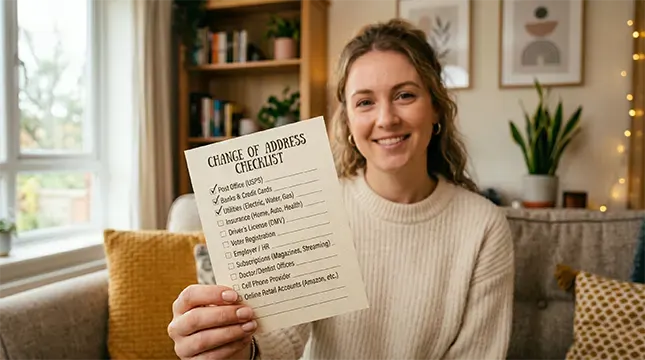 CHANGE OF ADDRESS
CHECKLIST
Post Office (USPS)
Banks & Credit Cards
Utilities (Electric, Water, Gas)
Insurance (Home, Auto, Health)
Driver's License (DMV)
Voter Registration
Employer / HR
Subscriptions (Magazines, Streaming)
Doctor/Dentist Offices
Cell Phone Provider
Online Retail Accounts (Amazon, etc.)